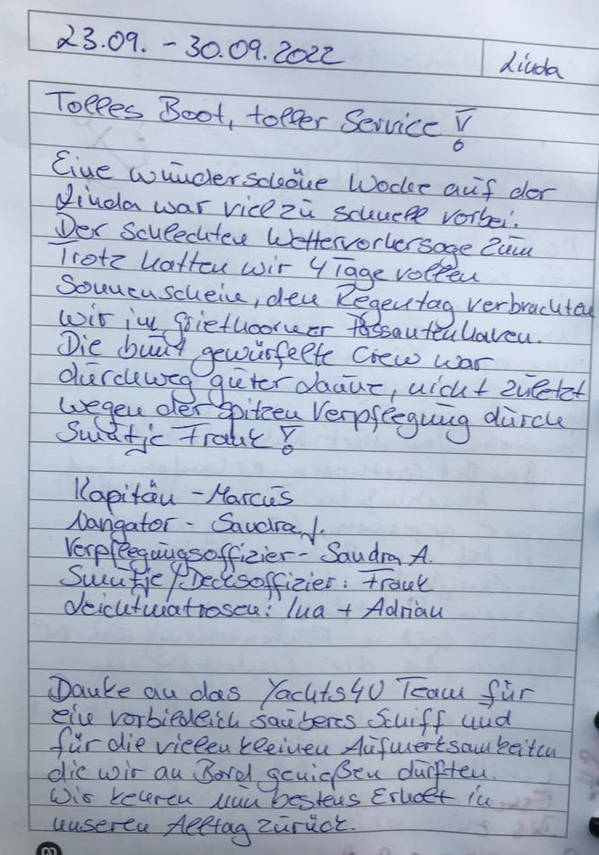 23.09. - 30.09.2022
Linda
Tolles Boot, toller Service!
Eine wunderschöne Woche auf der
Linda war viel zu schnell vorbei.
Der schlechten Wettervorhersage zum
Trotz hatten wir 4 Tage vollen
Sonnenschein, den Regentag verbrachten
wir im Giethoorner Passantenhaven.
Die bunt gewürfelte Crew war
durchweg guter Laune, nicht zuletzt
wegen der spitzen Verpflegung durch
Smutje Frank!
Kapitän - Marcus
Navigator - Sandra J.
Verpflegungsoffizier - Sandra A.
Smutje / Decksoffizier: Frank
Leichtmatrosen: Ina + Adrian
Danke an das Yachts4U Team für
ein vorbildlich saubers Schiff und
für die vielen kleinen Aufmerksamkeiten
die wir an Bord genießen durften.
Wir kehren nun bestens Erholt in
unseren Alltag zurück.